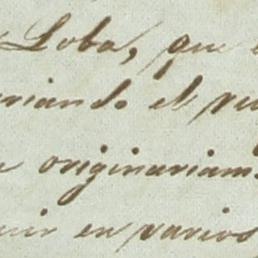 Loba, que
riando el
originariam.
en varios